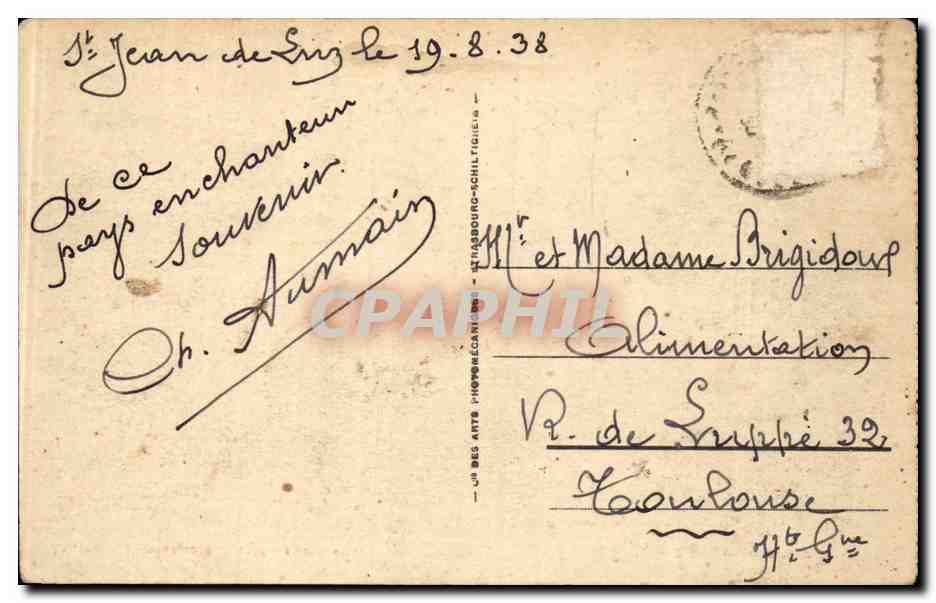 St Jean de Luz le 19.8.38
De ce
pays enchanteur
souvenir.
Ch. Aumain
Mr et Madame Brigidoul
Alimentation
R. de Luppé 32
Toulouse
Hte Gne
Cie DES ARTS PHOTOMÉCANIQUES - STRASBOURG-SCHILTIGHEIM
CPAPHIL